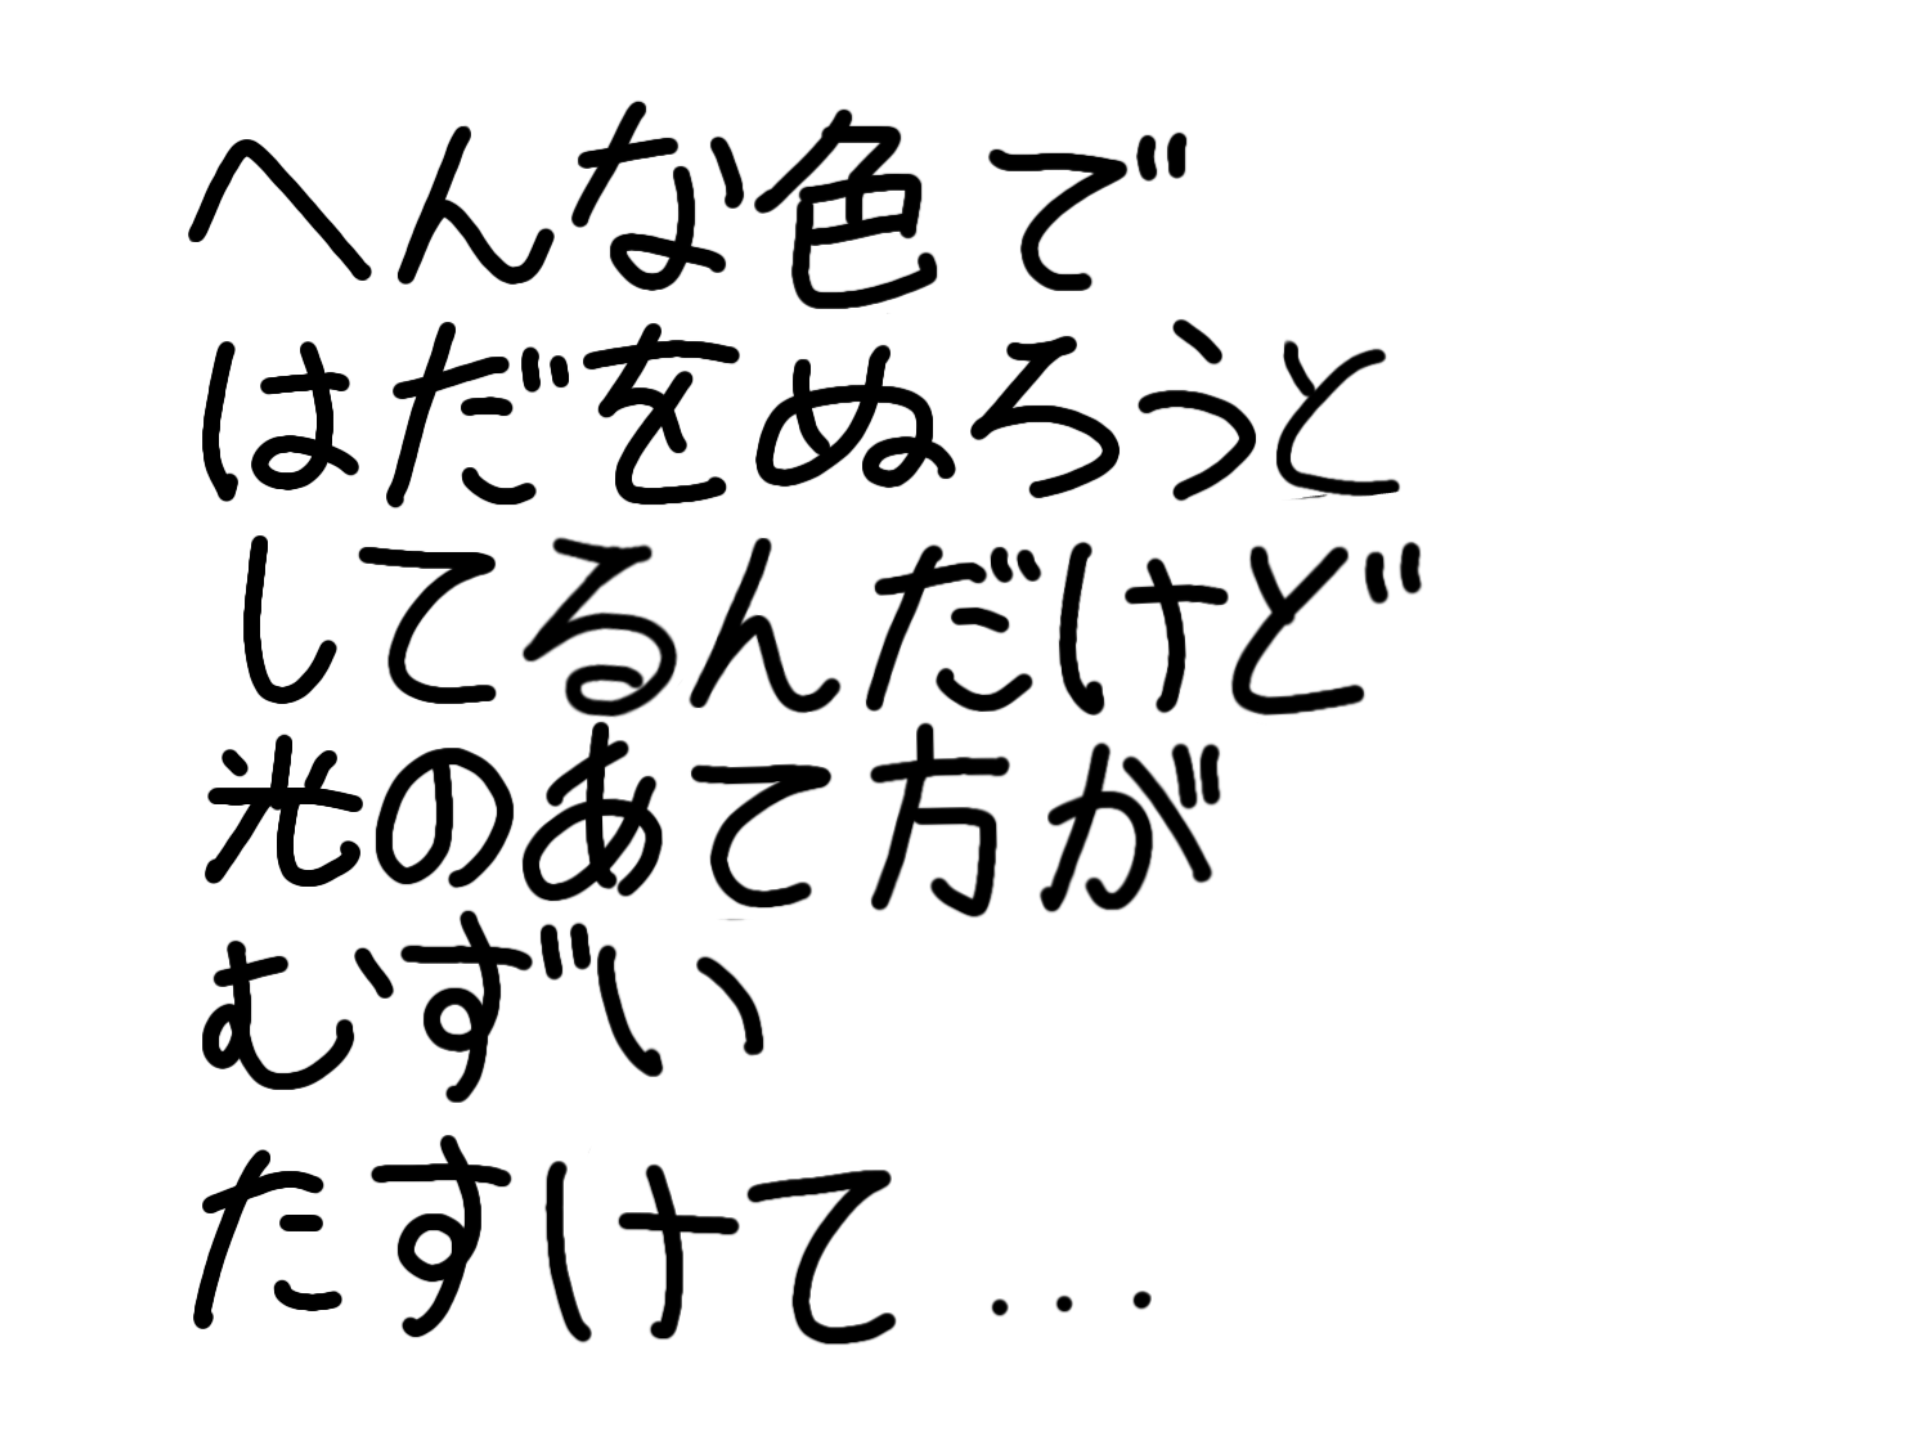 へんな色で
はだをぬろうと
してるんだけど
光のあて方が
むずい
たすけて...